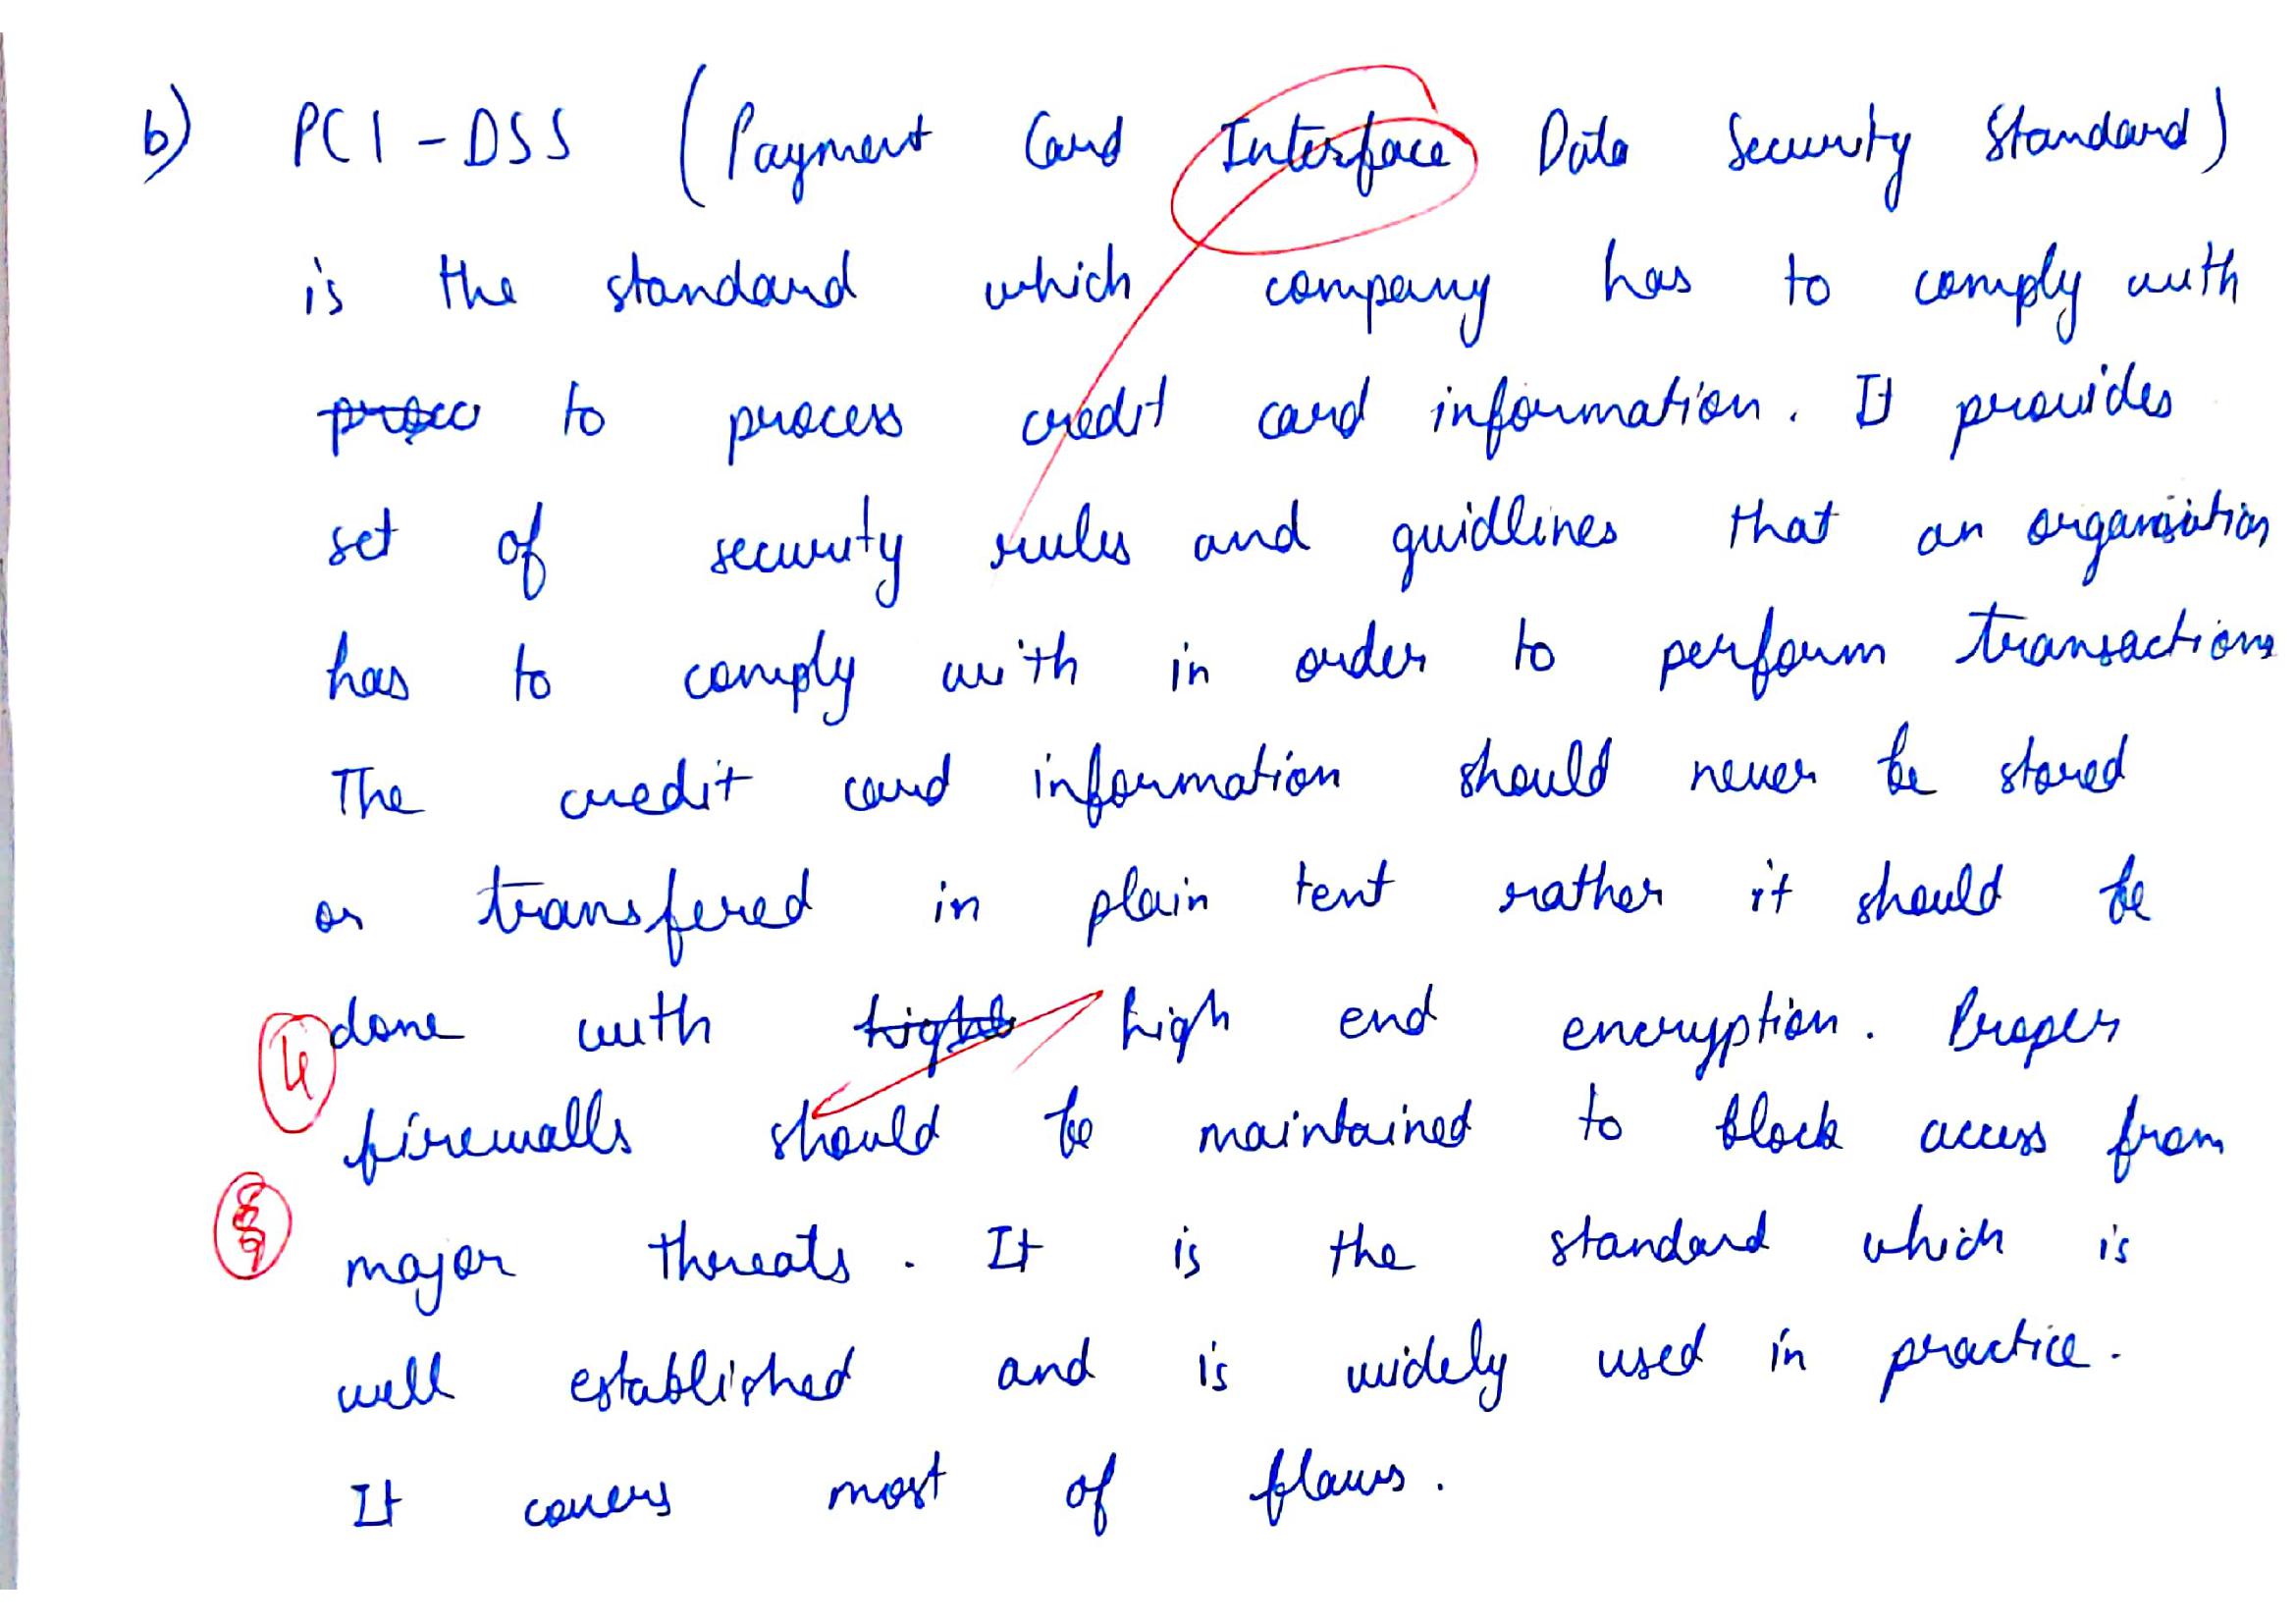 b) PCI-DSS (Payment Card Interface Data Security Standard)
is the standard which company has to comply with
to process credit card information. It provides
set of security rules and guidlines that an organisation
has to comply with in order to perform transactions
The credit card information should never be stored
or transfered in plain text rather it should be
done with high end encryption. Proper
firewalls should be maintained to block access from
major threats. It is the standard which is
well established and is widely used in practice.
It covers most of flaws.